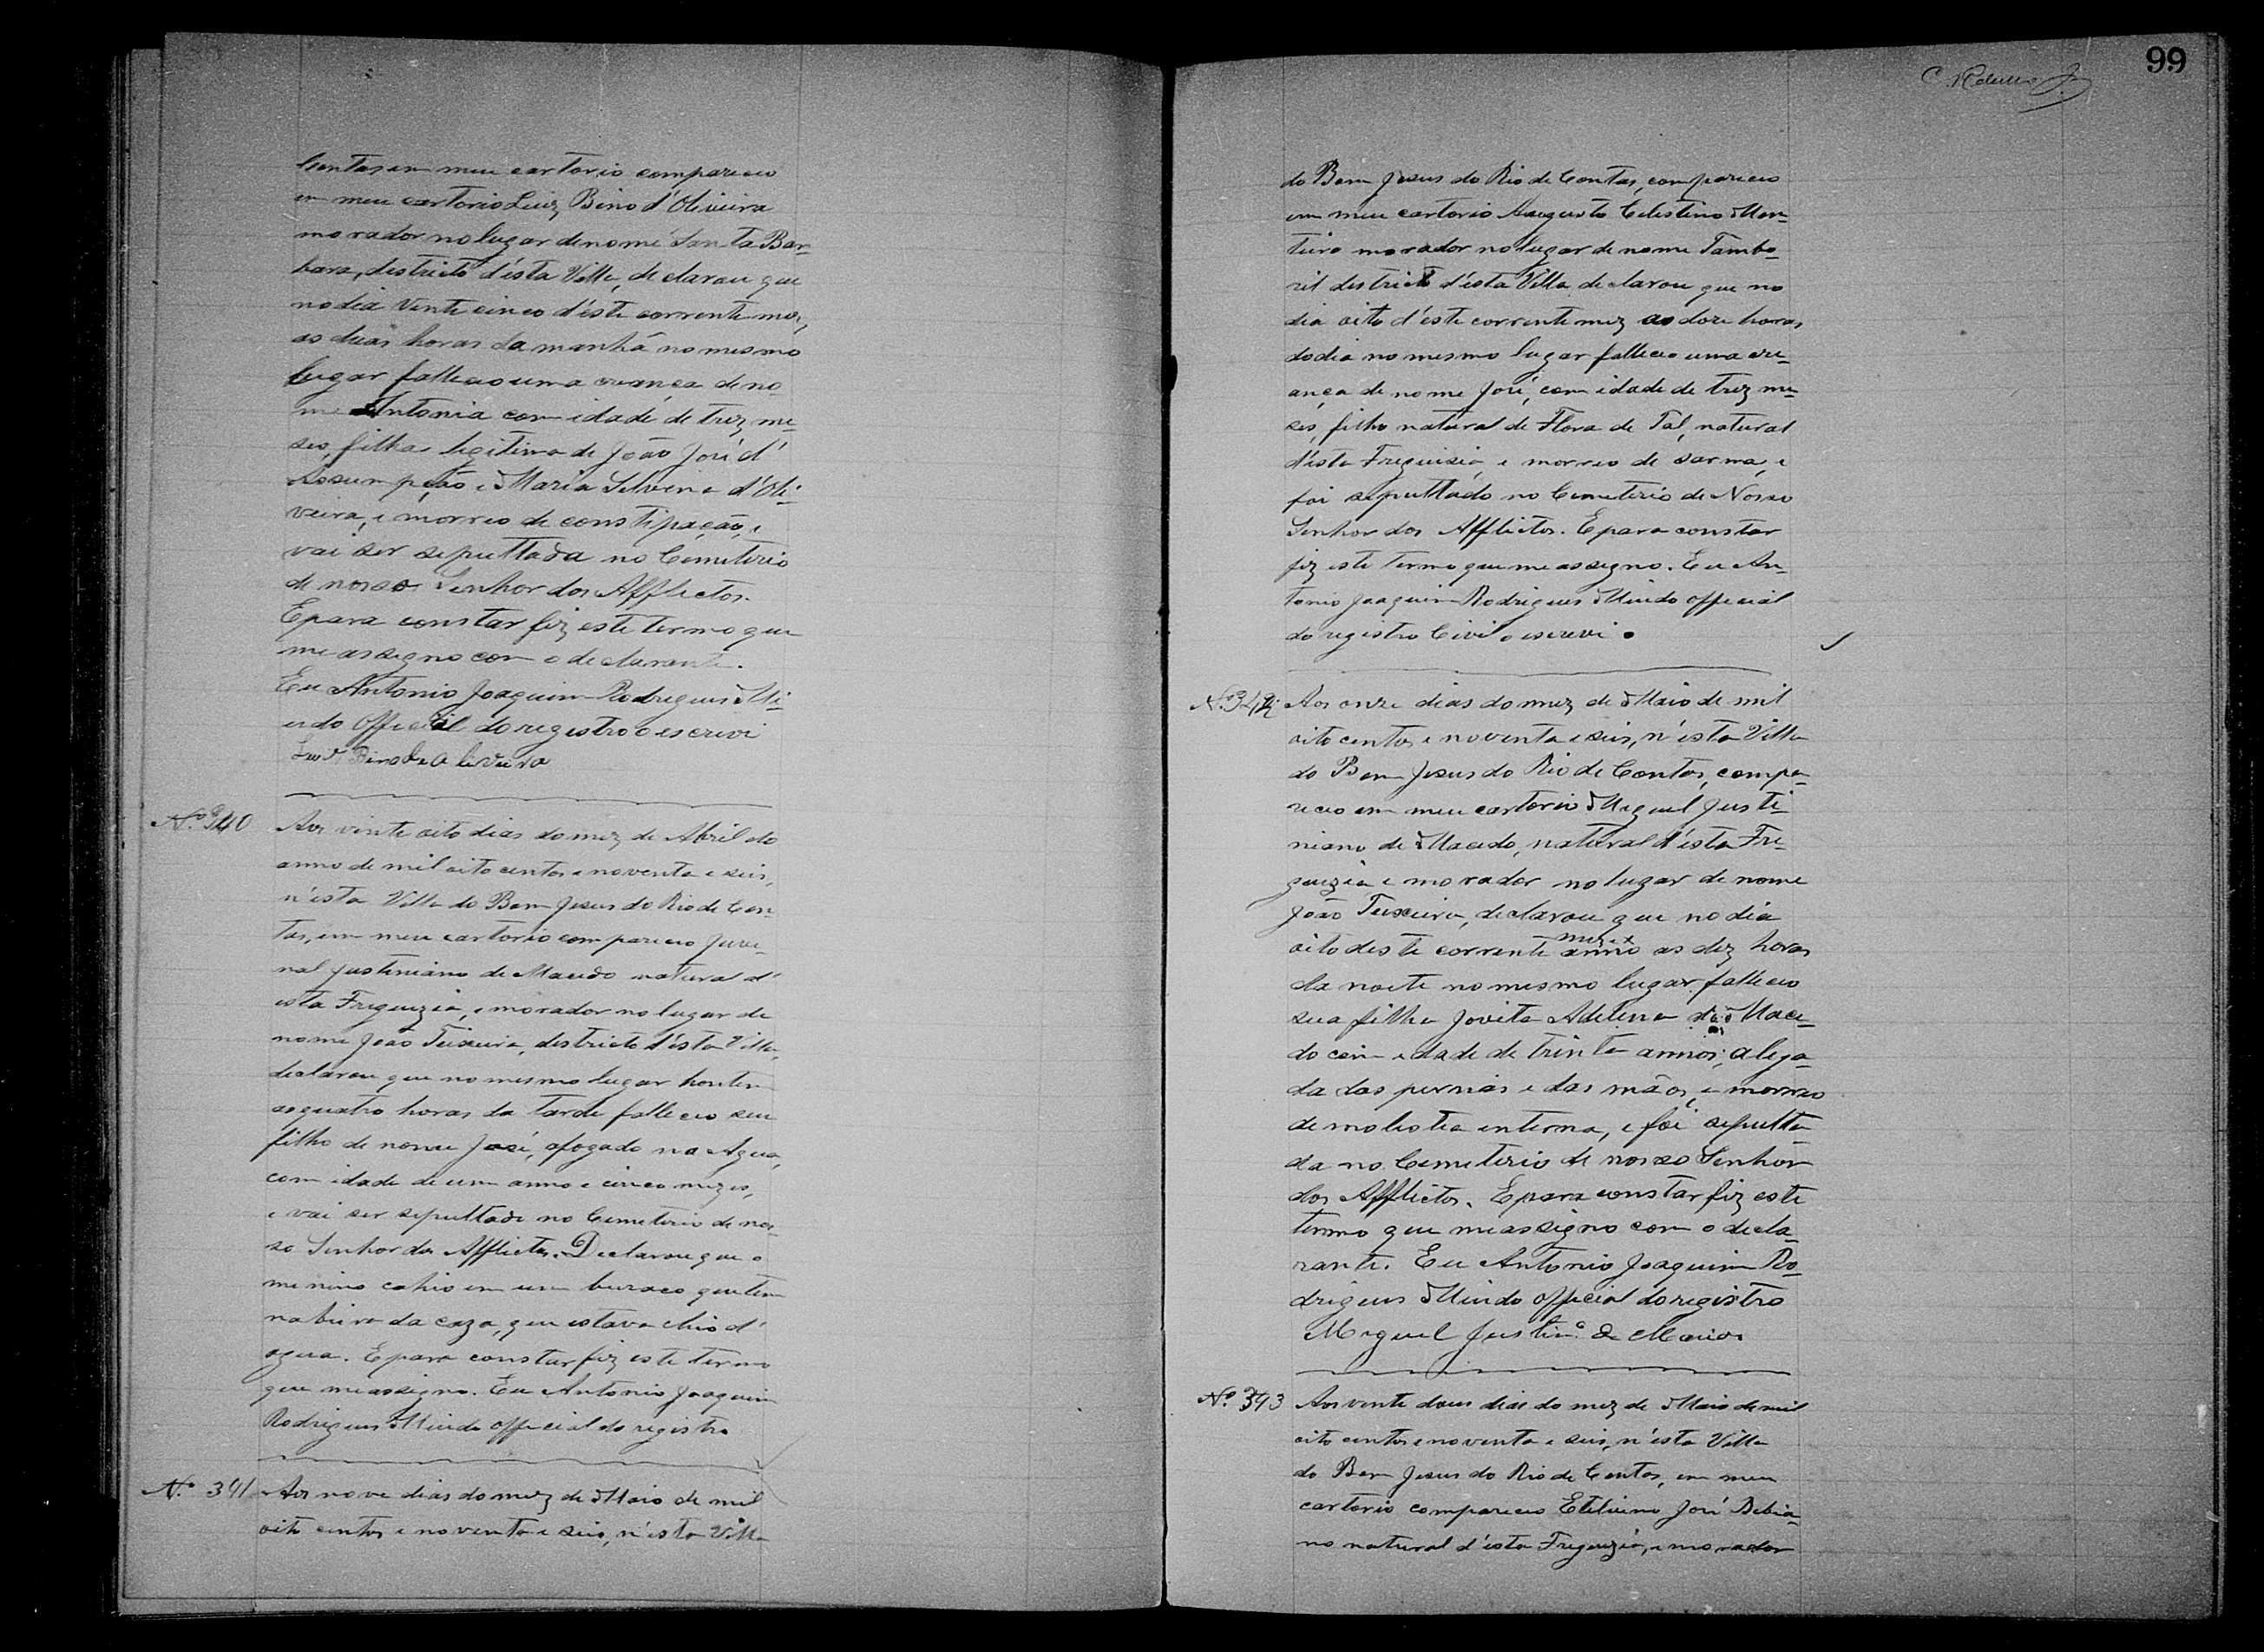 Contas em meu cartorio compareceo
em meu cartorio Luiz Bino d'Oliveira
morador no lugar de nome Santa Bar-
bara, districto d'esta Villa, declarou que
no dia vinte cinco d'este corrente mez,
as duas horas da manhã no mesmo
lugar falleceo uma creança de no-
me Antonia com idade de trez me-
ses, filha legitima de João José d'
Assumpção e Maria Silvina d'Oli-
veira, e morreo de constipação, e
vai ser sepultada no Cemiterio
de nosso Senhor dos Afflictos.
E para constar fiz este termo que
me assigno com o declarante.
Eu Antonio Joaquim Rodrigues Mi-
udo Official do registro o escrevi
Luiz Bino de Oliveira
Nº 340
Aos vinte oito dias do mez de Abril do
anno de mil oito centos e noventa e seis,
n'esta Villa do Bom Jesus do Rio de Con-
tas, em meu cartorio compareceo Juve-
nal Justiniano de Macedo natural d'
esta Freguezia, e morador no lugar de
nome João Teixeira, districto d'esta Villa,
declarou que no mesmo lugar hontem
as quatro horas da tarde falleceo seu
filho de nome José, afogado na Agua,
com idade de um anno e cinco mezes,
e vai ser sepultado no Cemiterio de nos-
so Senhor dos Afflictos. Declarou que o
menino cahio em um buraco que tem
na beira da caza, que estava cheio d'
agua. E para constar fiz este termo
que me assigno. Eu Antonio Joaquim
Rodrigues Miudo official do registro
Nº 341
Aos nove dias do mez de Maio de mil
oito centos e noventa e seis, n'esta Villa
99
do Bom Jesus do Rio de Contas, compareceo
em meu cartorio Augusto Celestino Mon-
teiro morador no lugar de nome Tambo-
ril districto d'esta Villa declarou que no
dia oito d'este corrente mez as doze horas
do dia no mesmo lugar falleceo uma cre-
ança de nome José, com idade de trez me-
ses, filho natural de Flora de Tal, natural
d'esta Freguisia, e morreo de sarma, e
foi sepultado no Cemiterio de Nosso
Senhor dos Afflictos. E para constar
fiz este termo que me assigno. Eu An-
tonio Joaquim Rodrigues Miudo official
do registro Civil o escrevi.
Nº 342
Aos onze dias do mez de Maio de mil
oito centos e noventa e seis, n'esta Villa
do Bom Jesus do Rio de Contas, compa-
receo em meu cartorio Miguel Justi-
niano de Macedo, natural d'esta Fre-
guezia e morador no lugar de nome
João Teixeira, declarou que no dia
mez
oito deste corrente anno as dez horas
da noite no mesmo lugar falleceo
sua filha Jovita Adelina de Mace-
do com idade de trinta annos, aleja-
da das pernas e das mãos, e morreo
de molestia interna, e foi sepulta-
da no Cemiterio de nosso Senhor
dos Afflictos. E para constar fiz este
termo que me assigno com o decla-
rante. Eu Antonio Joaquim Ro-
drigues Miudo official do registro
Miguel Justinº de Macedo
Nº 343
Aos vente dous dias do mez de Maio de mil
oito centos e noventa e seis, n'esta Villa
do Bom Jesus do Rio de Contas, em meu
cartorio compareceo Etelvino José Bibia-
no natural d'esta Freguezia, e morador